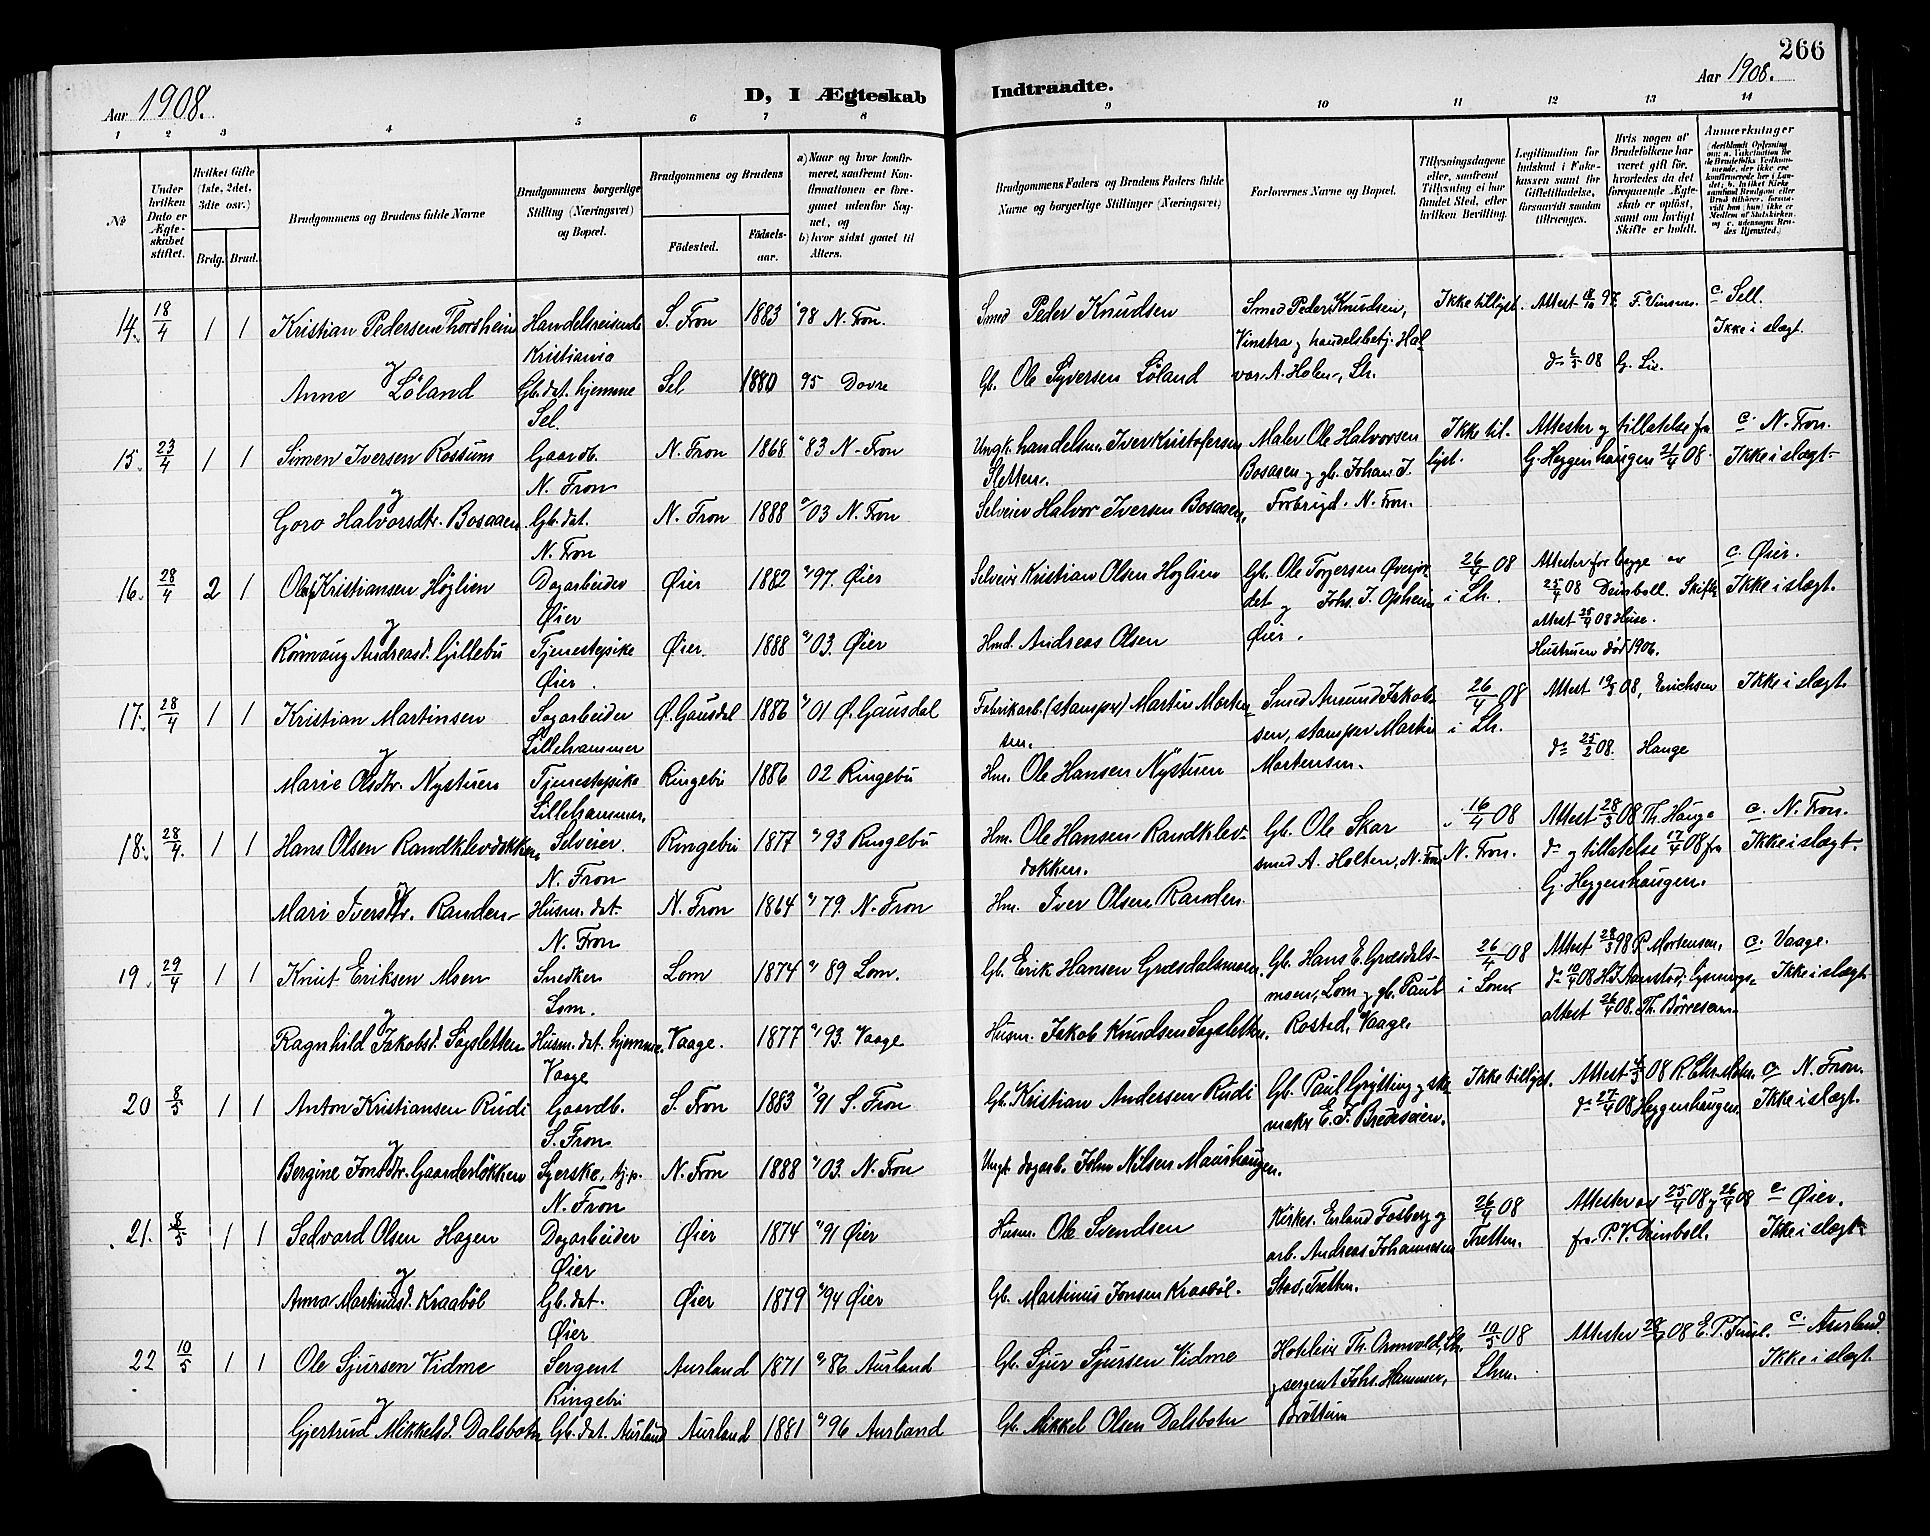 266
Aar 1908.
D, I Ægteskab Indtraadte.
Aar 1908.
1 2 3 4 5 6 7 8 9 10 11 12 13 14
No
Under hvilken Dato er Ægteskabet stiftet.
Hvilket Gifte (1ste, 2det, 3die osv.)
Brdg. Brud.
Brudgommens og Brudens fulde Navne
Brudgommens borgerlige Stilling (Næringsvei) og Bopæl.
Brudgommens og Brudens
Fødested.
Fødselsaar.
a) Naar og hvor konfirmeret, samfremt Konfirmationen er foregaaet udenfor Sognet, og
b) hvor sidst gaaet til Alters.
Brudgommens Faders og Brudens Faders fulde Navne og borgerlige Stillinger (Næringsvei)
Forlovernes Navne og Bopæl.
Tillysningsdagene eller, samfremt Tillysning ei har fundet Sted, efter hvilken Bevilling.
Legitimation for Indskud i Fakrkassen samt for Giftetilladelse, forsaavidt saadan tiltrænges.
Hvis nogen af Brudefolkene har været gift før, hvorledes da det foregaaende Ægteskab er opløst, samt om lovligt Skifte er holdt.
Anmærkninger
14. 18/4 1 1 Kristian Pedersen Thorsheim Handelsreisende S. Fron 1883 98 N. Fron. Smed Peder Knudsen Smed Peder Knudsen, Ikke tillyst. Attest 18/10 97 F. Vinsnes. c Sell.
og Kristiania Vinstra og handelsbetj. Hal- Ikke i slægt.
Anne Løland Gb. dat. hjemme Sel 1880 95 Dovre Gb. Ole Syversen Løland vor A. Holen, Lh. do 08 G. Lie.
Sel.
15. 23/4 1 1 Simen Iversen Rossum Gaardb. N. Fron 1868 83 N. Fron Ungk. handelsm. Iver Kristofersen Maler Ole Halvorsen Ikke til- Attester og tillatelse fra c. N. Fron.
og N. Fron Sletten. Bosaaen og gb. Johan I. lyst. G. Heggenhaugen 21/4 08. Ikke i slægt
Goro Halvorsdtr. Bosaaen Gb. dat. N. Fron 1888 03 N. Fron Selveier Halvor Iversen Bosaaen, Forbrigd. N. Fron.
N. Fron
16. 28/4 2 1 Olaf Kristiansen Høglien Dagarbeider Øier 1882 97. Øier Selveier Kristian Olsen Høglien Gb. Ole Torgersen Øverjor- 26/4 08 Attester for begge av c. Øier.
og Øier det og Johs. I. Opheim i Lh. 25/4 08 Deinboll. Skifte Ikke i slægt.
attest 25/4 08 Huse.
Rønnaug Andreasd. Gillebu Tjenestepike Øier. 1888 03. Øier Hmd. Andreas Olsen Øier. Hustruen død 1906.
Øier.
17. 28/4 1 1 Kristian Martinsen Sagarbeider Ø. Gausdal 1886 01 Ø. Gausdal Fabrikarb. (stamper) Martin Morten- Smed Amund Jakob- 26/4 08 Attest 08, Erichsen Ikke i slægt.
og Lillehammer sen. sen, stamper Martin i Lh.
Marie Olsdtr. Nystuen Tjenestepike Ringebu 1886 02 Ringebu Hm. Ole Hansen Nystuen Mortensen. do 25/2 08. Hauge
Lillehammer.
18. 28/4. 1 1 Hans Olsen Randklevdokken Selveier Ringebu 1877 93 Ringebu Hm. Ole Hansen Randklev- Gb. Ole Skar 16/4 08 Attest 28/3 08 Th. Hauge c. N. Fron.
og N. Fron dokken. smed A. Holten, N. Fron N. Fron. do og tillatelse 17/4 08 fra Ikke i slægt.
Mari Iversdtr. Randen Husm. dat. N. Fron 1864 79. N. Fron Hm. Iver Olsen Randen. G. Heggenhaugen.
N. Fron
19. 29/4 1 1 Knut Eriksen Moen Snedker Lom 1874 89 Lom. Gb. Erik Hansen Græsdalsmoen Gb. Hans E. Græsdals- 26/4 08 Attest 28/3 98 P. Mortensen, c. Vaage.
og Lom. moen, Lom og gb. Paul i Lom do 08 H. J. Aanstad. Lysnings- Ikke i slægt
Ragnhild Jakobsd. Sagsletten Husm. dat. hjemme. Vaage. 1877 93. Vaage Husm. Jakob Knudsen Sagsletten. Rosted, Vaage. attest 26/4 08. Th. Børresen
Vaage
20 8/5 1 1 Anton Kristiansen Rudi Gaardb. S. Fron 1883 91 S. Fron Gb. Kristian Andersen Rudi Gb. Paul Grytting og sko- Ikke tillyst. Attest 08 c N. Fron.
og S. Fron maker E. F. Bredeveien. do 27/4 08 Heggenhaugen. Ikke i slægt.
Bergine Jonsdtr. Gaarderløkken Syerske, tj.p. N. Fron 1888 03. N. Fron Ungk. dagarb. John Nilsen Maushaugen.
N. Fron
21. 8/5 1 1 Sedvard Olsen Hagen Dagarbeider Øier 1874 91 Øier Husm. Ole Svendsen Kirkes. Erland Fosberg og 26/4 08 Attester av 25/4 08 og 26/4 08 c Øier.
og Øier arb. Andreas Johannesen Tretten. fra P. V. Deinboll. Ikke i slægt
Anna Martinusd. Kraabøl Gb. dat. Øier 1879 94 Øier Gb. Martinus Jonsen Kraabøl. Stad, Tretten.
Øier
22 10/5 1 1 Ole Sjursen Vidme Sergent Aurland 1871 86 Aurland Gb. Sjur Sjursen Vidme Hotelier Th. Ormvold, Lh. 10/5 08 Attester 08 E. P. Juul. c. Aurland.
og Ringebu og sergent Johs. Hammer, Lhm. Ikke i slægt
Gjertrud Mikkelsd. Dalsbotn Gb. dat. Aurland Aurland 1881 96 Aurland Gb. Mikkel Olsen Dalsbotn Brøttum